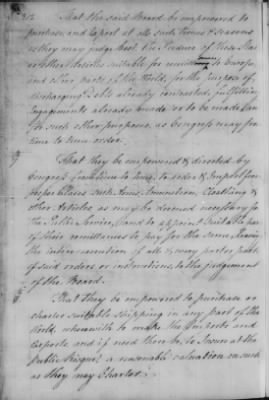 That the said Board be empowered to
purchase and Export at all such times & seasons
as they may judge best, the Produce of these States
or other Articles suitable for remittances to Europe,
and other parts of the World, for the purpose of
discharging Debts already contracted, fulfilling
Engagements already made or to be made, and
for such other purposes as Congress may from
time to time order.
That they be empowered & directed by
Congress from time to time, to order & Import from
such Arms, Ammunition, Cloathing &
other Articles as may be deemed necessary for
the Public Service, and to appoint suitable part
of their remittances to pay for the same, leaving
the intire execution of all & every part
of such orders or instructions, to the judgement
of the Board.
That they be empowered to purchase or
charter suitable shipping in any part of the
World wherewith to make the Imports and
Exports and if need there be, to Insure at the
Public Risque, a reasonable valuation on such
as they may Charter.